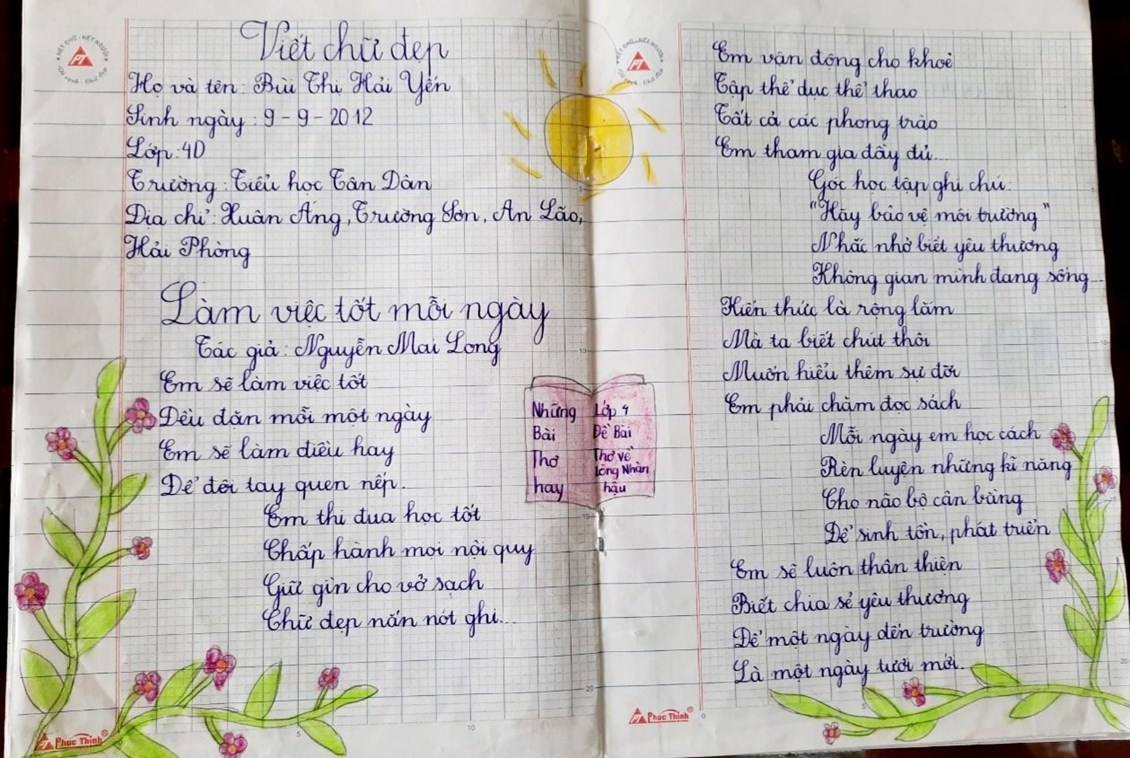 Viết chữ đẹp
Họ và tên: Bùi Thị Hải Yến
Sinh ngày: 9-9-2012
Lớp: 4D
Trường: Tiểu học Tân Dân
Địa chỉ: Xuân Áng, Trường Sơn, An Lão,
Hải Phòng
Làm việc tốt mỗi ngày
Tác giả: Nguyễn Mai Long
Em sẽ làm việc tốt
Đều đặn mỗi một ngày
Em sẽ làm điều hay
Để đôi tay quen nếp.
Em thi đua học tốt
Chấp hành mọi nội quy
Giữ gìn cho vở sạch
Chữ đẹp nắn nót ghi...
Những
Bài
Thơ
hay
Lớp 4
Đề Bài
Thơ về
lòng Nhân
hậu
Em vận động cho khoẻ
Tập thể dục thể thao
Tất cả các phong trào
Em tham gia đầy đủ...
Góc học tập ghi chú:
"Hãy bảo vệ môi trường"
Nhắc nhở biết yêu thương
Không gian mình đang sống...
Kiến thức là rộng lắm
Mà ta biết chút thôi
Muốn hiểu thêm sự đời
Em phải chăm đọc sách
Mỗi ngày em học cách
Rèn luyện những kĩ năng
Cho não bộ cân bằng
Để sinh tồn, phát triển
Em sẽ luôn thân thiện
Biết chia sẻ yêu thương
Để một ngày đến trường
Là một ngày tươi mới.
Phúc Thịnh
Phúc Thịnh